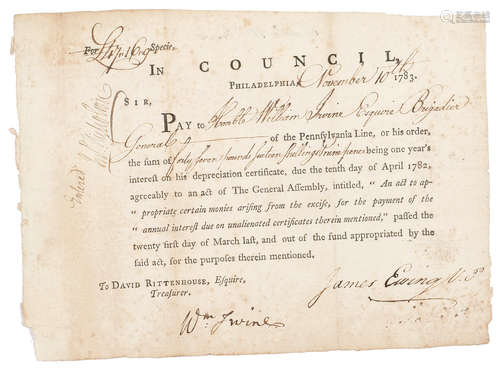 For £47.16.9 Specie,
IN COUNCIL,
PHILADELPHIA, November 10th 1783.
SIR,
PAY to Honble William Irvine Esquire Brigadier
General of the Pennsylvania Line, or his order,
the sum of forty seven pounds sixteen shillings & nine pence being one year's
interest on his depreciation certificate, due the tenth day of April 1782,
agreeably to an act of The General Assembly, intitled, “ An act to ap-
“ propriate certain monies arising from the excise, for the payment of the
“ annual interest due on unalienated certificates therein mentioned,” passed the
twenty first day of March last, and out of the fund appropriated by the
said act, for the purposes therein mentioned.
To DAVID RITTENHOUSE, Esquire,
Treasurer.
James Ewing V. P.
Wm Irvine